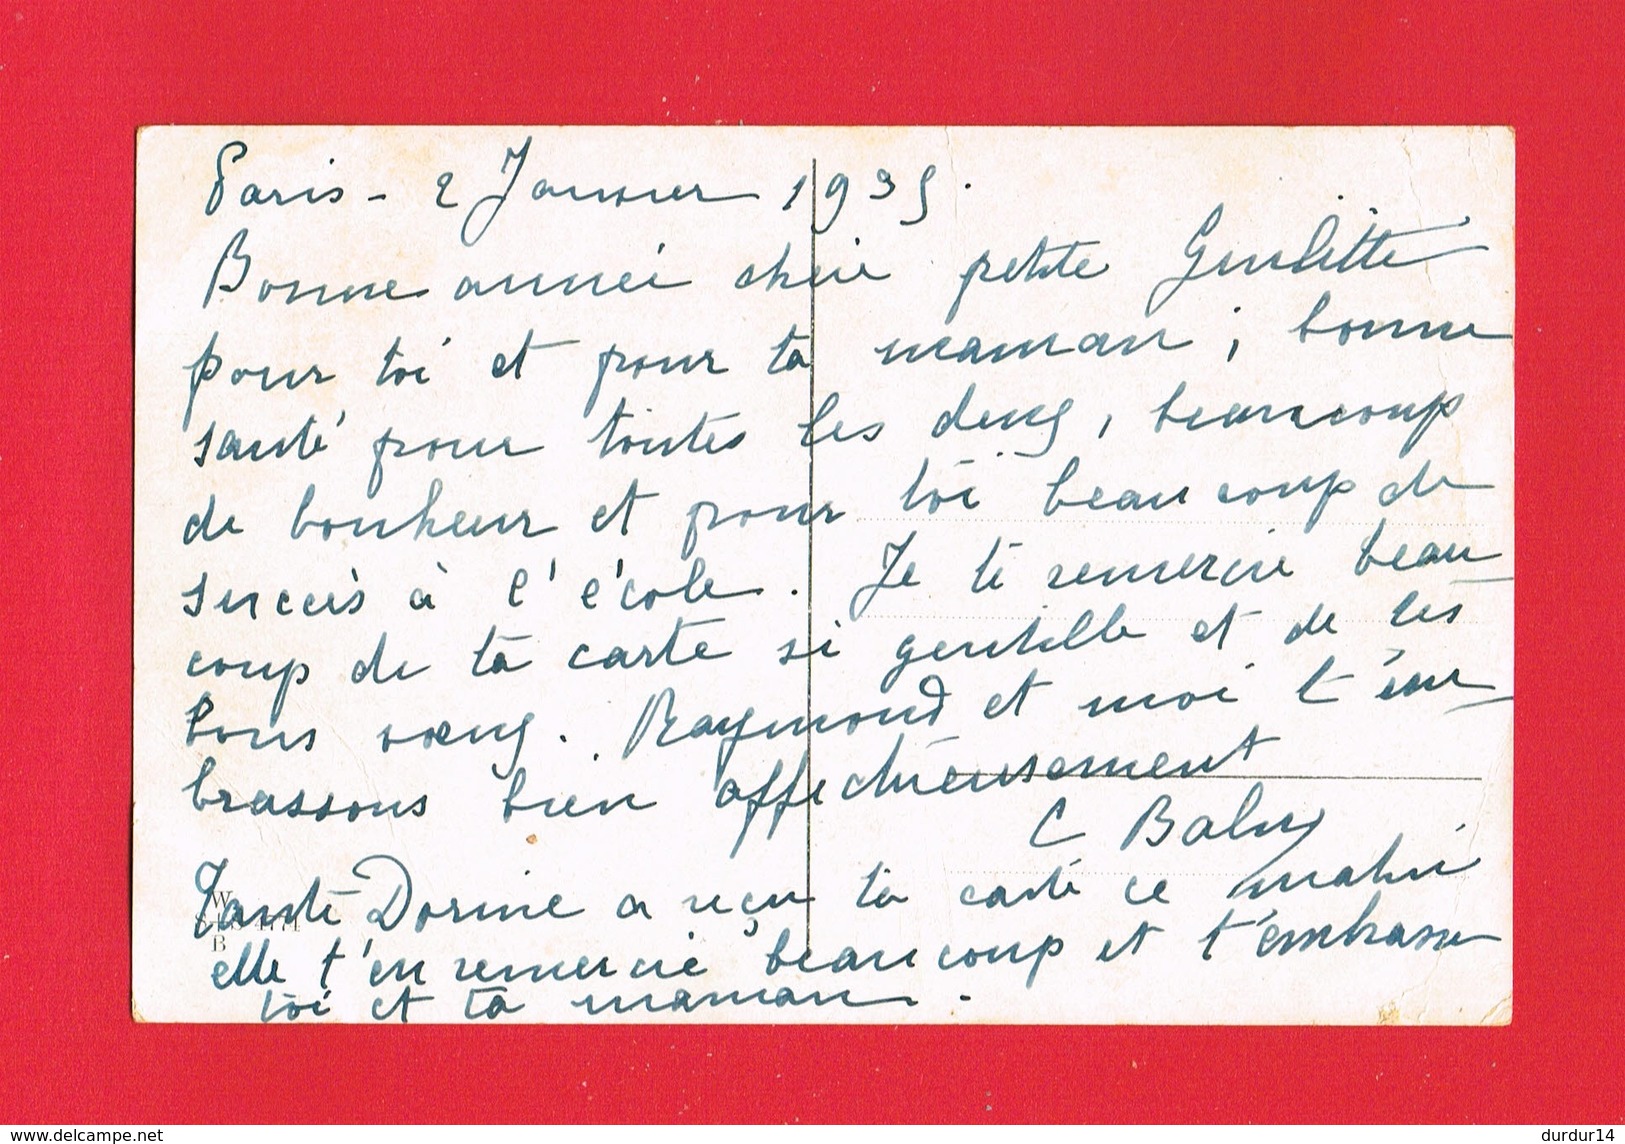 Paris - 2 Janvier 1935.
Bonne année chère petite
pour toi et pour ta maman, bonne
santé pour toutes les deux, beaucoup
de bonheur et pour toi beaucoup de
succès à l'école. Je te remercie beau
coup de ta carte si gentille et de tes
bons vœux. Raymond et moi t'em
brassons bien affectueusement
C Baluy
Tante Dorine a reçu ta carte ce matin
elle t'en remercie beaucoup et t'embrasse
toi et ta maman.
W
B
delcampe.net
durdur14